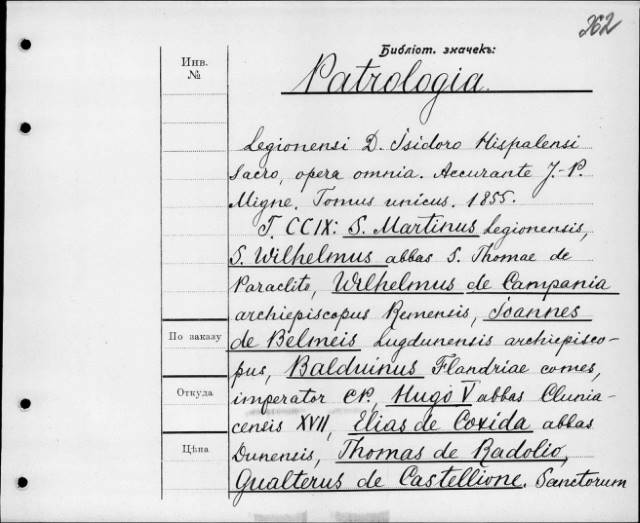 262
Библіот. значекъ:
Инв.
№
Patrologia.
Legionensi D. Isidoro Hispalensi
sacro, opera omnia. Accurante J.-P.
Migne. Tomus unicus. 1855.
T. CCIX: S. Martinus Legionensis,
S. Wilhelmus abbas S. Thomae de
Paraclito, Wilhelmus de Campania
archiepiscopus Remensis, Joannes
По заказу
de Belmeis Lugdunensis archiepisco-
pus, Balduinus Flandriae comes,
Откуда
imperator CP., Hugo V abbas Clunia-
censis XVII, Elias de Coxida abbas
Цѣна
Dunensis, Thomas de Radolio,
Gualterus de Castellione. Sanctorum